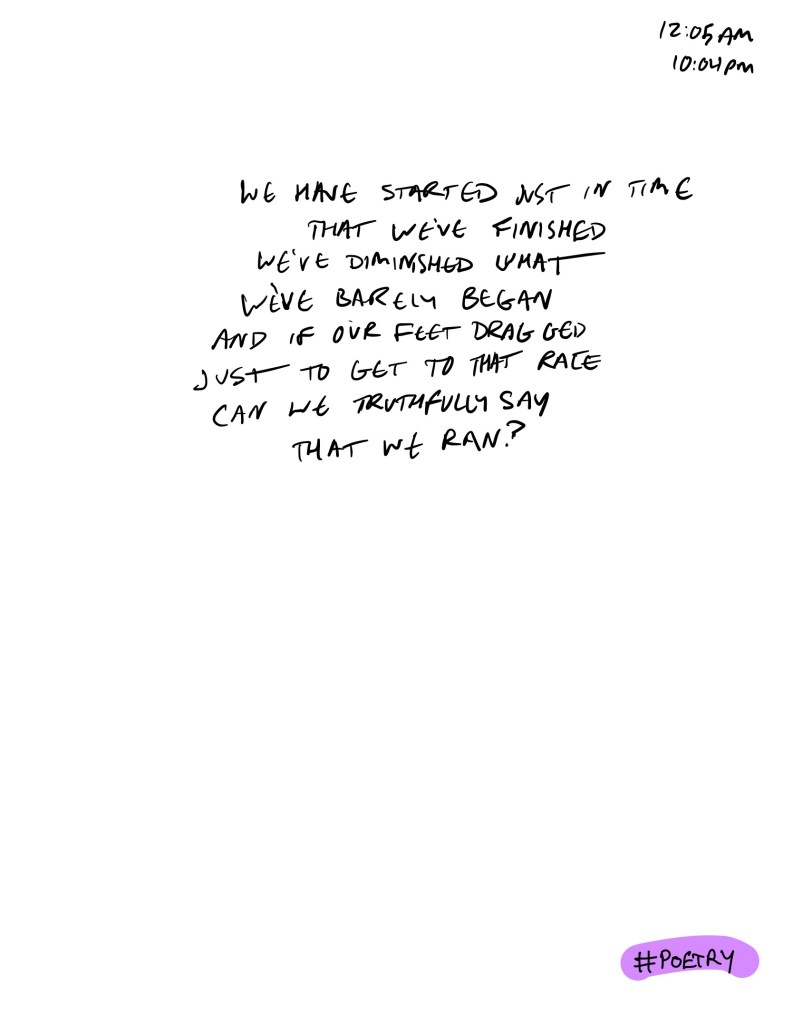 12:05 AM
10:04 PM
WE HAVE STARTED JUST IN TIME
THAT WE'VE FINISHED
WE'VE DIMINISHED WHAT
WE'VE BARELY BEGAN
AND IF OUR FEET DRAGGED
JUST TO GET TO THAT RACE
CAN WE TRUTHFULLY SAY
THAT WE RAN?
#POETRY